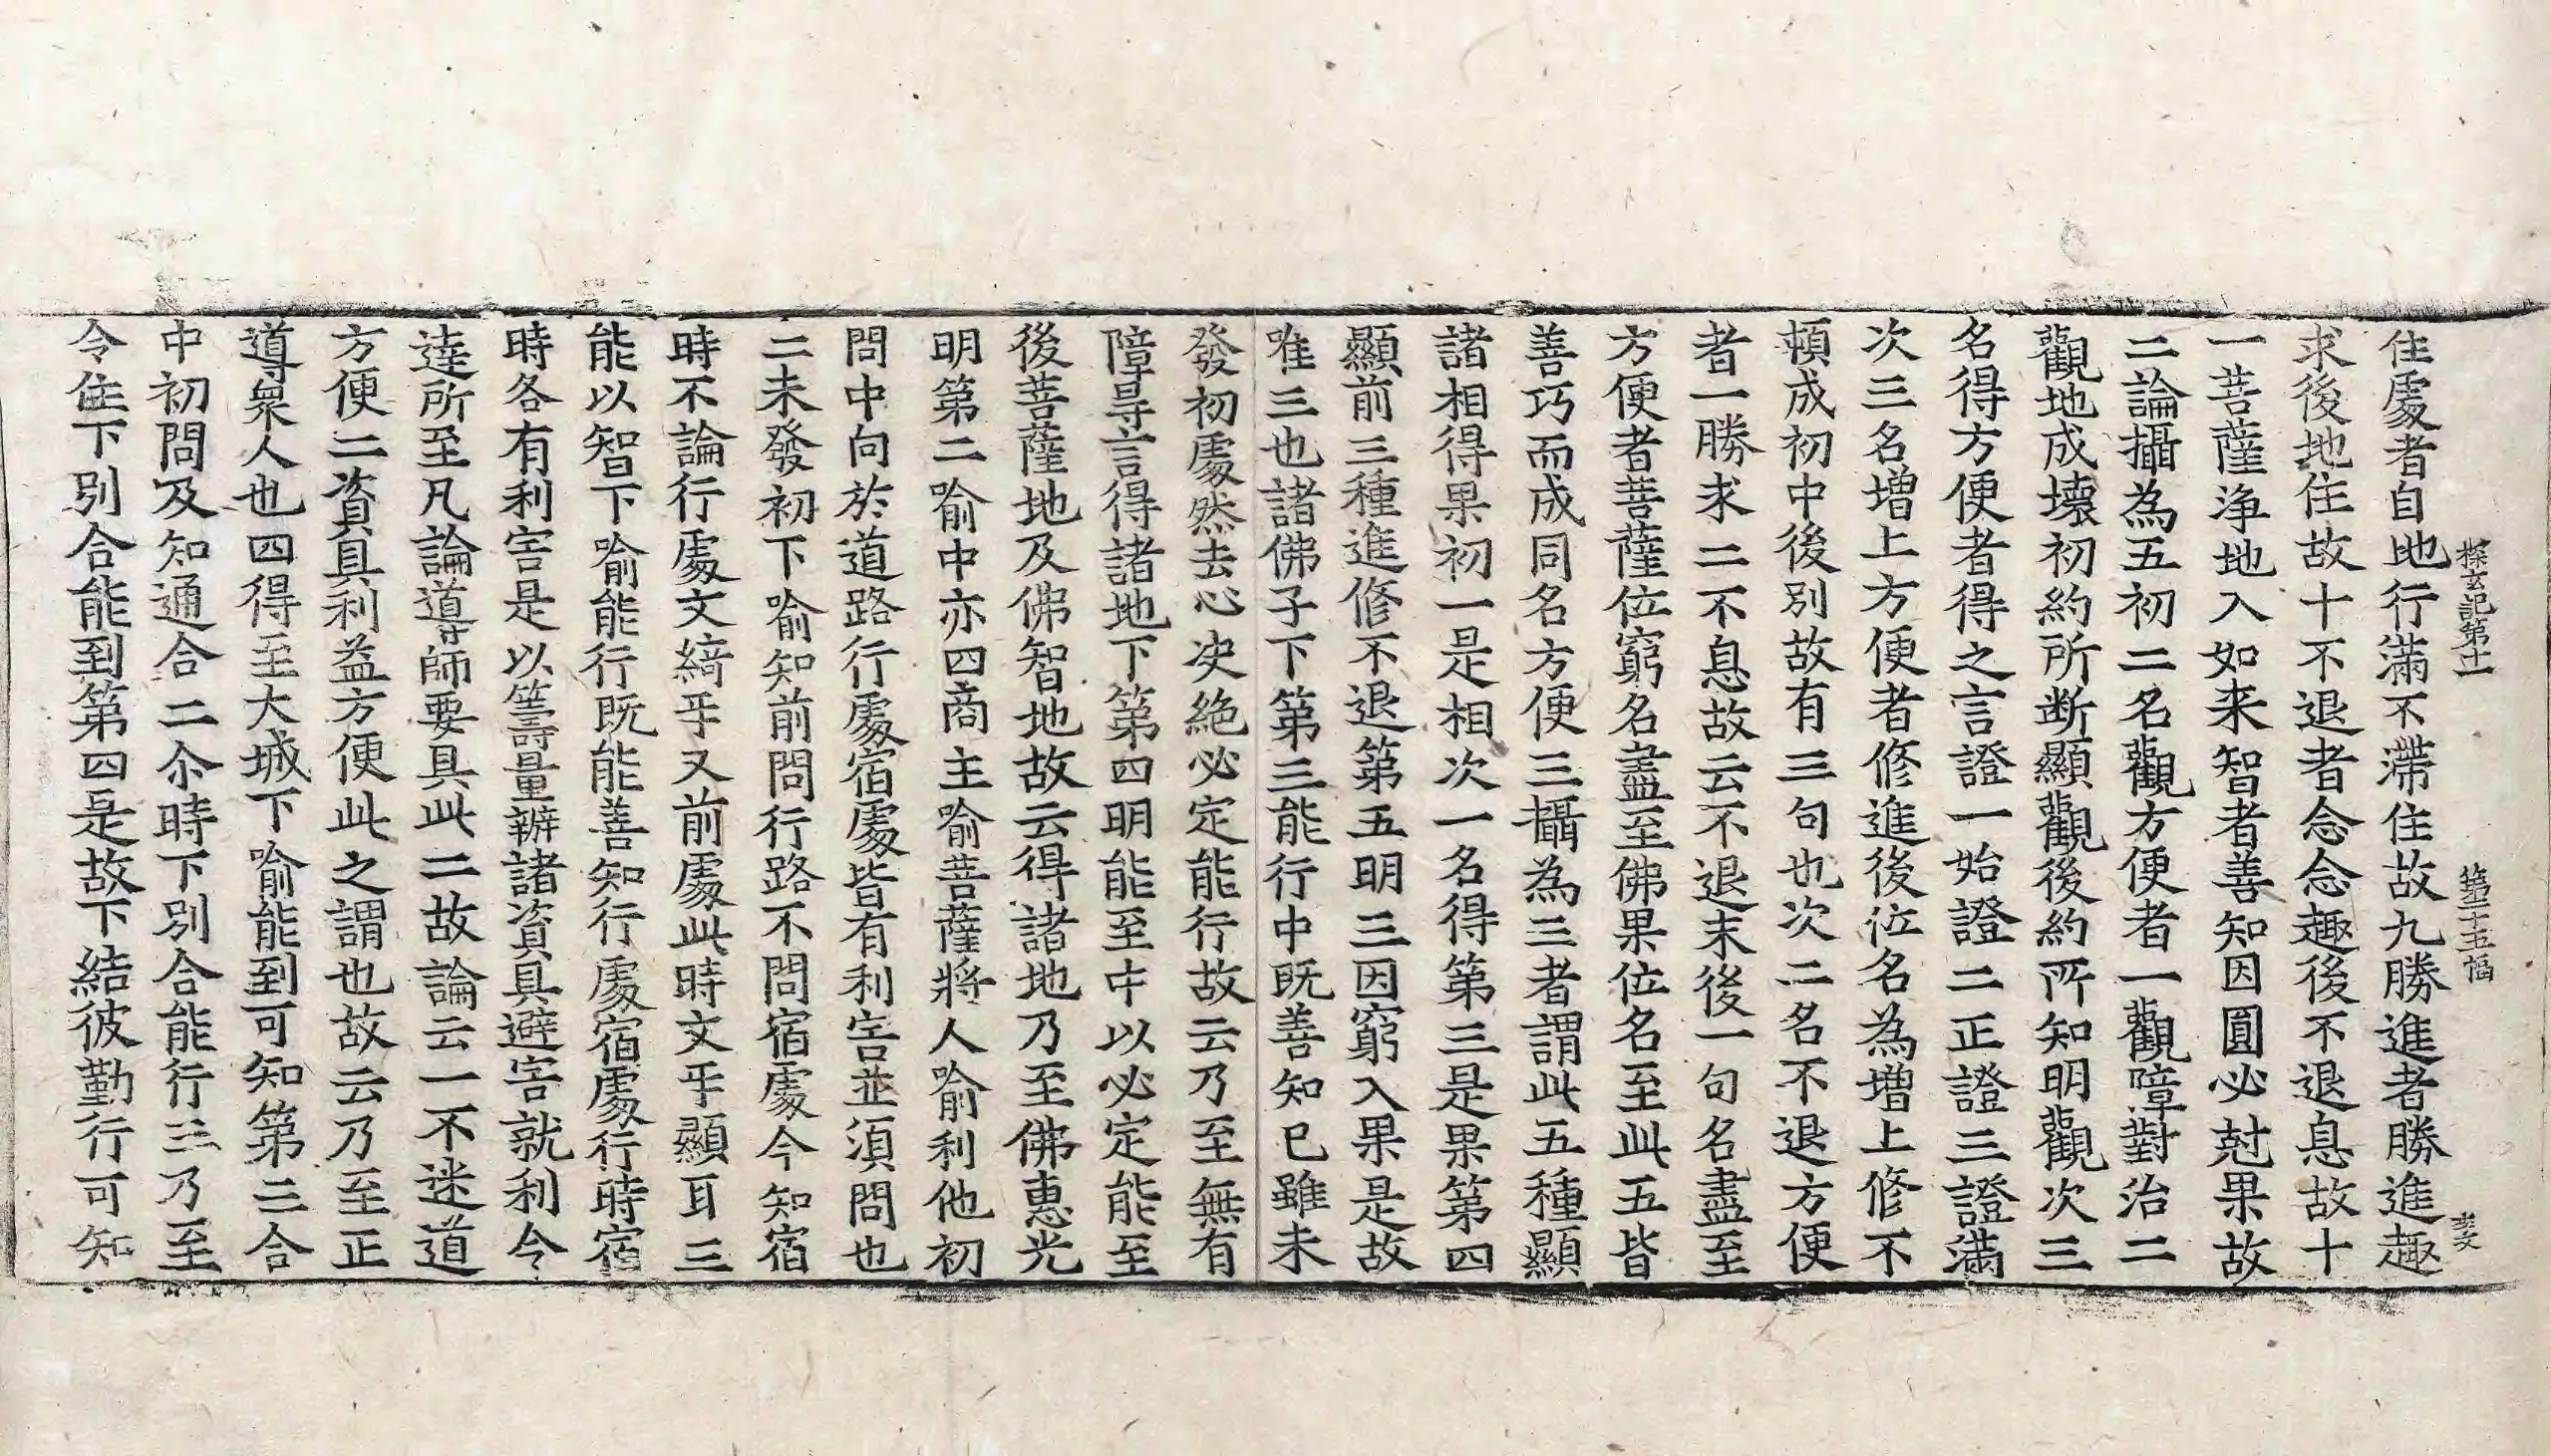 探玄記第十一　第二十五幅
住處者自地行滿不滯住故九勝進者勝進趣
求後地住故十不退者念念趣後不退息故十
一菩薩淨地入如来智者善知因圓必剋果故
二論攝為五初二名觀方便者一觀障對治二
觀地成壞初約所斷顯觀後約所知明觀次三
名得方便者得之言證一始證二正證三證滿
次三名增上方便者修進後位名為增上修不
頓成初中後別故有三句也次二名不退方便
者一勝求二不息故云不退末後一句名盡至
方便者菩薩位窮名盡至佛果位名至此五皆
善巧而成同名方便三攝為三者謂此五種顯
諸相得果初一是相次一名得第三是果第四
顯前三種進修不退第五明三因窮入果是故
唯三也諸佛子下第三能行中既善知已雖未
發初處然去心决絕必定能行故云乃至無有
障㝵言得諸地下第四明能至中以必定能至
後菩薩地及佛智地故云得諸地乃至佛惠光
明第二喻中亦四商主喻菩薩將人喻利他初
問中向於道路行處宿處皆有利害並須問也
二未發初下喻知前問行路不問宿處今知宿
時不論行處文綺㸦又前處此時文㸦顯耳三
能以智下喻能行既能善知行處宿處行時宿
時各有利害是以籌量辦諸資具避害就利令
達所至凡論導師要具此二故論云一不迷道
方便二資具利益方便此之謂也故云乃至正
導衆人也四得至大城下喻能到可知第三合
中初問及知通合二尒時下別合能行三乃至
令住下別合能到第四是故下結彼勤行可知